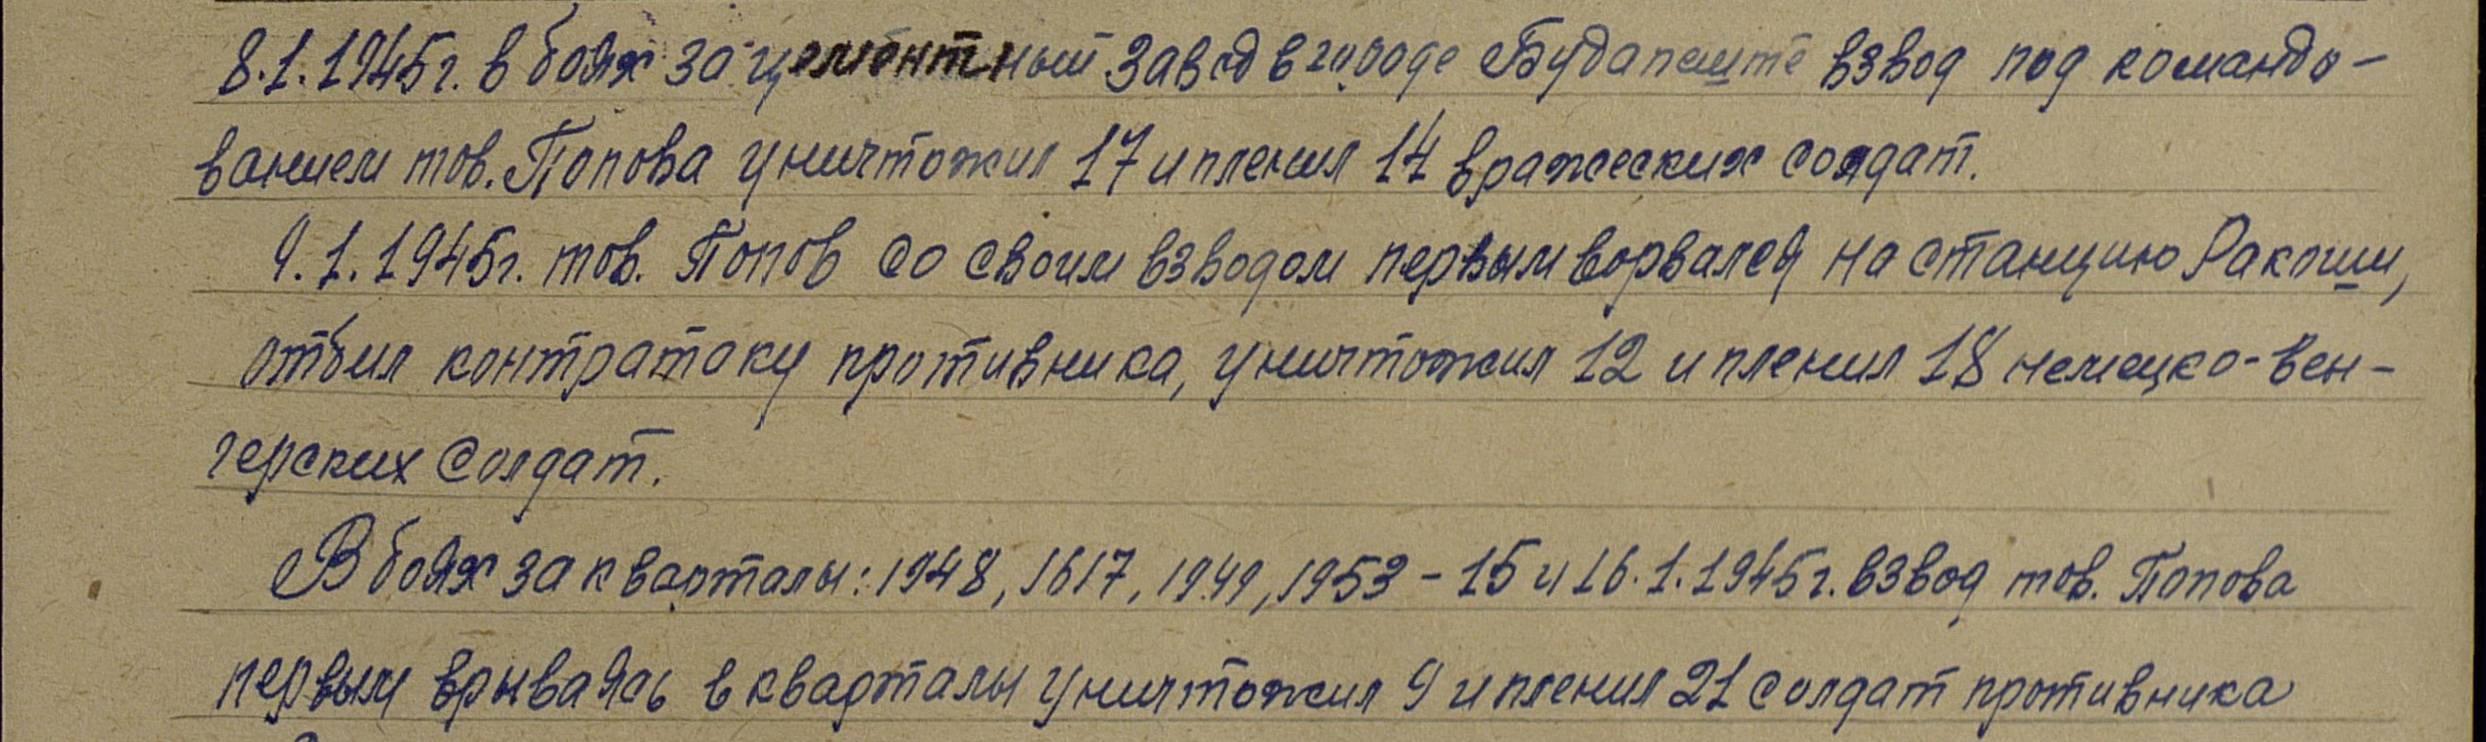 8.1.1945г. в боях за цементный завод в городе Будапеште взвод под командо-
ванием тов. Попова уничтожил 17 и пленил 14 вражеских солдат.
9.1.1945г. тов. Попов со своим взводом первым ворвался на станцию Ракоши,
отбил контратаку противника, уничтожил 12 и пленил 18 немецко-вен-
герских солдат.
В боях за кварталы: 1948, 1617, 1949, 1953 - 15 и 16.1.1945г. взвод тов. Попова
первым врываясь в кварталы уничтожил 9 и пленил 21 солдат противника